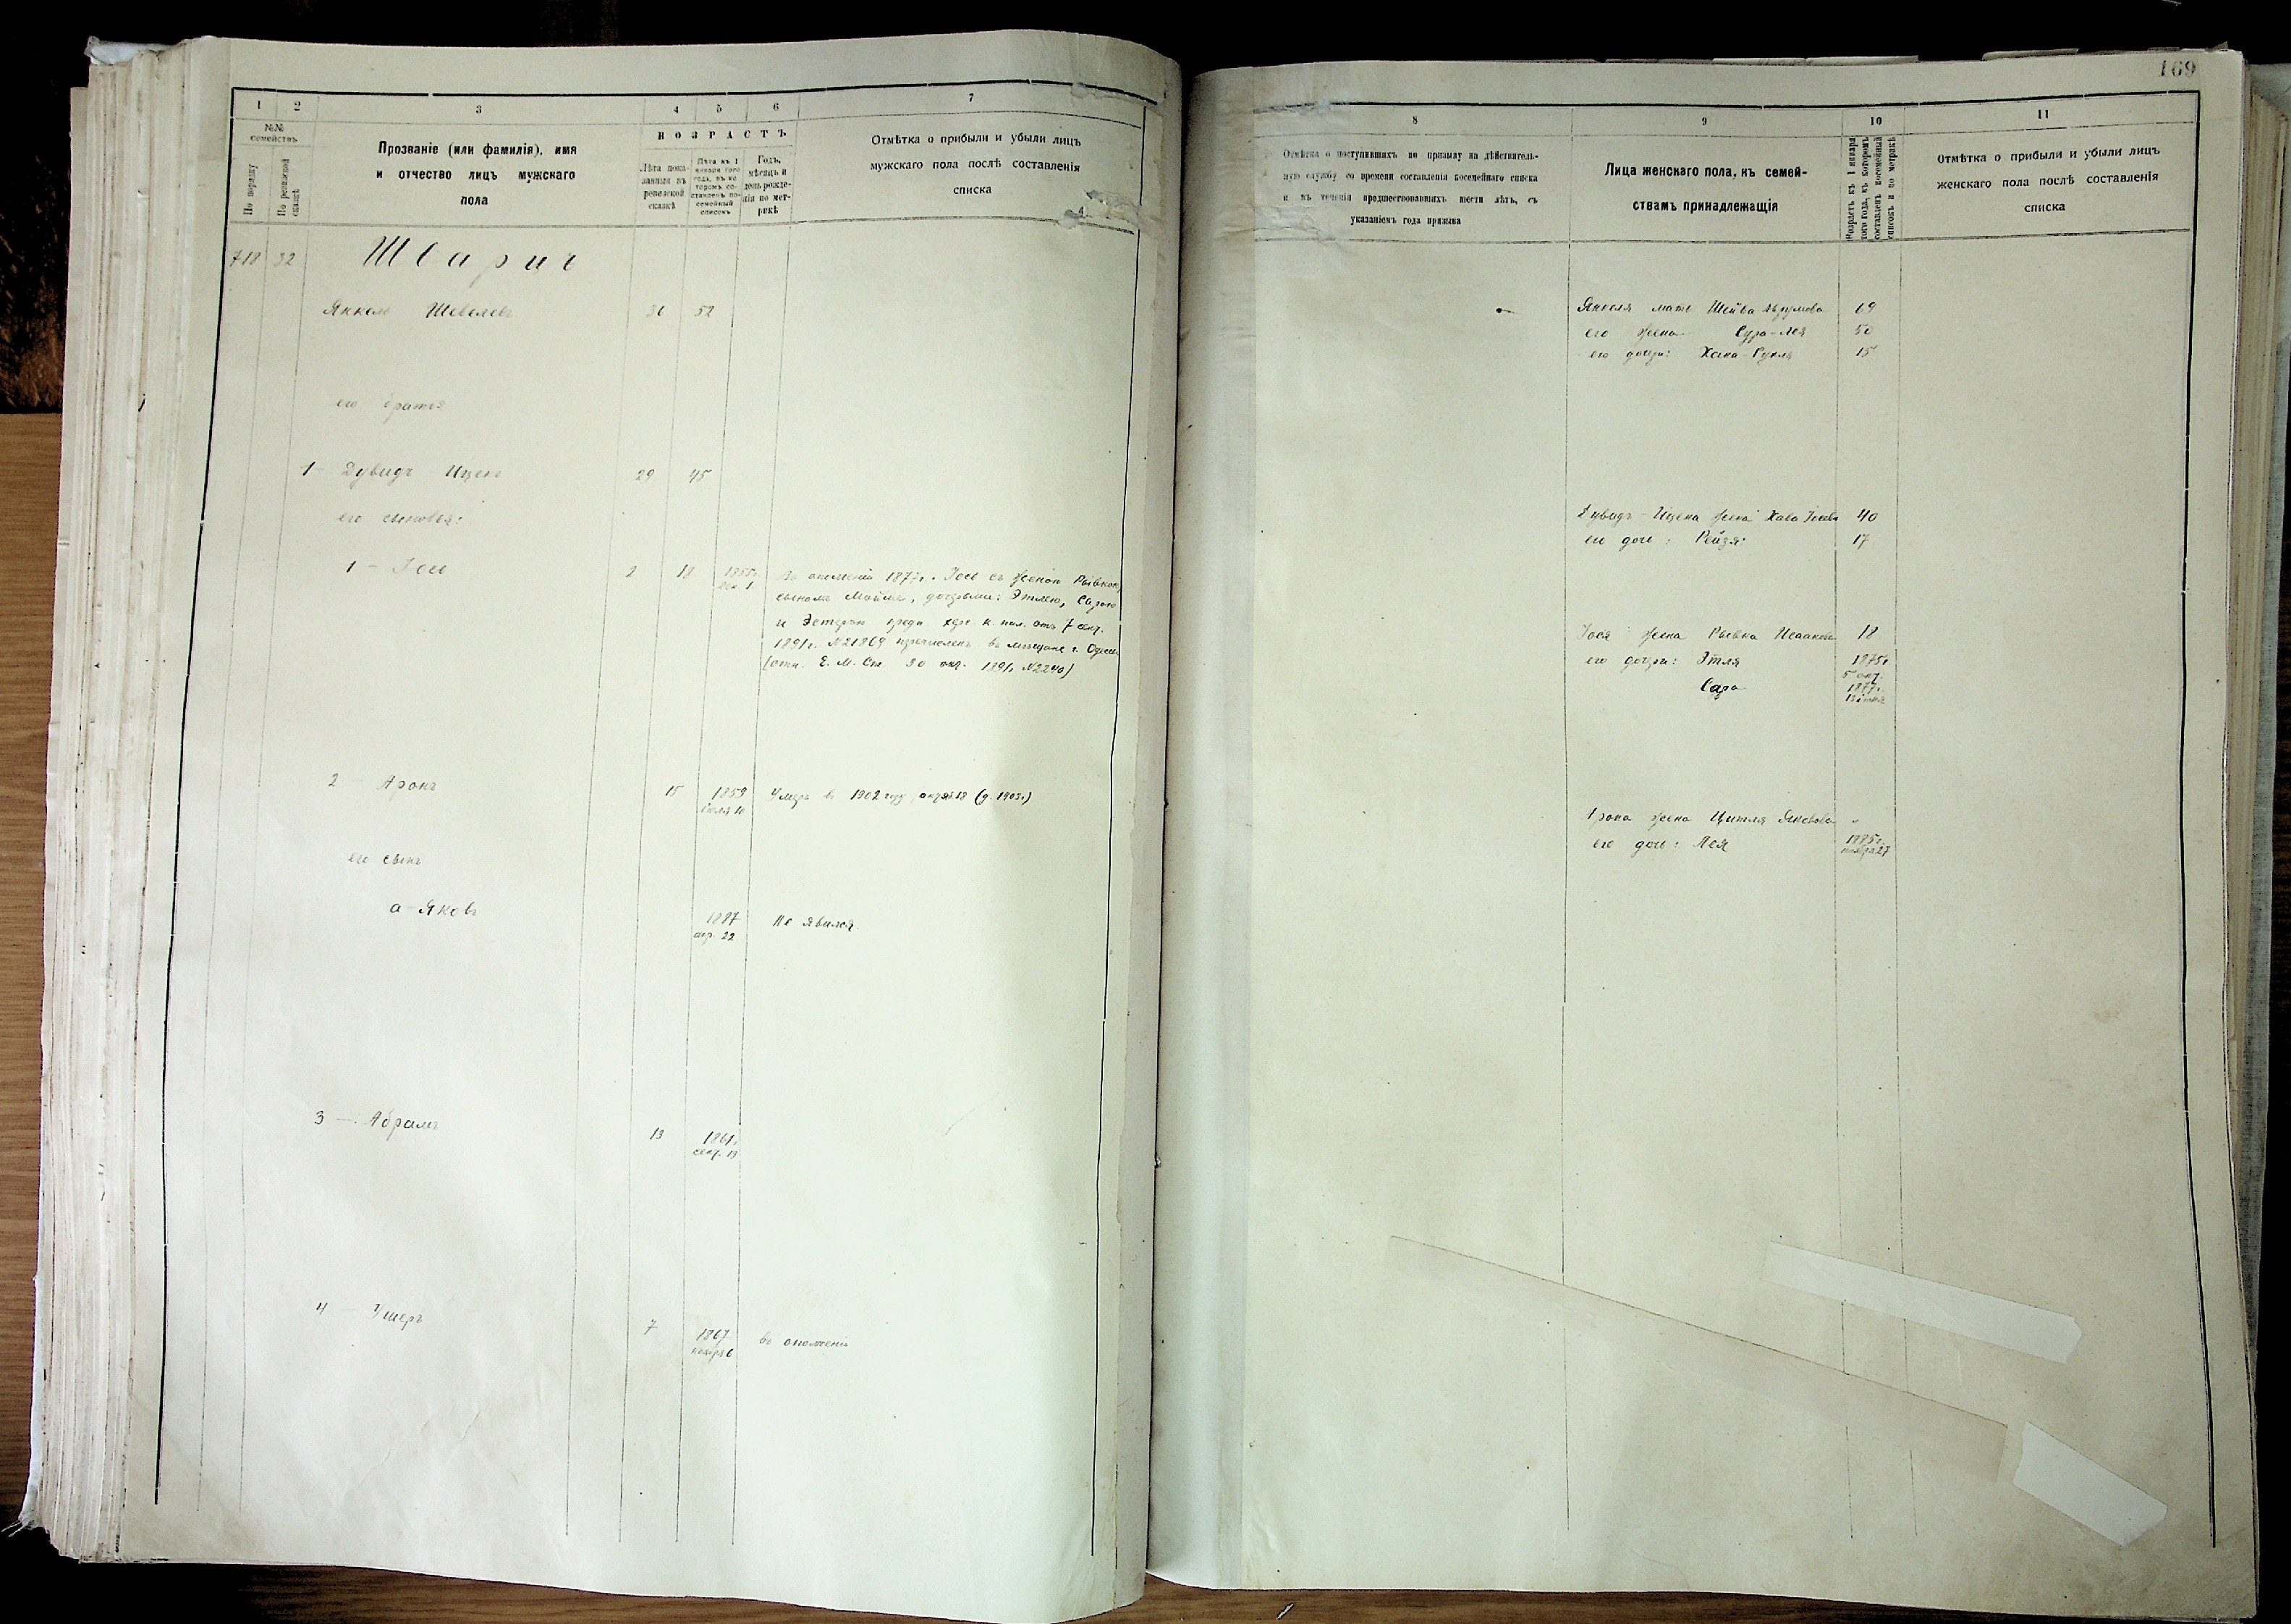 1 2 3 4 5 6 7
№№ семействъ
По порядку
По ревизской сказкѣ
Прозваніе (или фамилія), имя
и отчество лицъ мужскаго
пола
ВОЗРАСТЪ
Лѣта пока-
занныя въ
ревизской
сказкѣ
Лѣта къ 1
января того
года, въ ко-
торомъ со-
ставленъ по-
семейный
списокъ
Годъ,
мѣсяцъ и
день рожде-
нія по мет-
рикѣ
Отмѣтка о прибыли и убыли лицъ
мужскаго пола послѣ составленія
списка
718 32
Янкель Шевелевъ 36 52
его братья
1 – Дувидъ Ицекъ 29 45
его сыновья:
1 – Іось 2 18 1855г.
Въ ополченіи 1877г. Іось съ женою Рывкою,
сыномъ, дочерьми: Этлею, Сарою
и Эстерою 7 сент.
1891г. №21869 перечисленъ въ мѣщане г. Одессы
(отн. Е. М. Ст. 30 окт. 1891г. №2240)
2 – Аронъ 15 1859 іюля 10
Умеръ въ 1902 году (д. 1903г.)
его сынъ
а – Яковъ 1887 апр. 22 Не явился
3 – Абрамъ 13 1861г. сент. 19
4 – Ушеръ 7 1867 ноября 6 въ ополченіи
169
8 9 10 11
Отмѣтка о поступившихъ по призыву на дѣйствитель-
ную службу со времени составленія посемейнаго списка
и въ теченіи предшествовавшихъ шести лѣтъ, съ
указаніемъ года призыва
Лица женскаго пола, къ семей-
ствамъ принадлежащія
Возрастъ къ 1 января
того года, въ которомъ
составленъ посемейный
списокъ и по метрикѣ
Отмѣтка о прибыли и убыли лицъ
женскаго пола послѣ составленія
списка
Янкеля мать Шейва 69
его жена Сура-Лея 50
его дочри: Хана-Рухля 15
Дувидъ-Ицека жена Хава 40
его дочь: Рейзя 17
Іося жена Рывка Исаакова 18
его дочри: Этля 1875г.
5 окт.
Сара 1877г.
Арона жена Цитля Яковова "
его дочь: Лея 1885г.
ноября 27